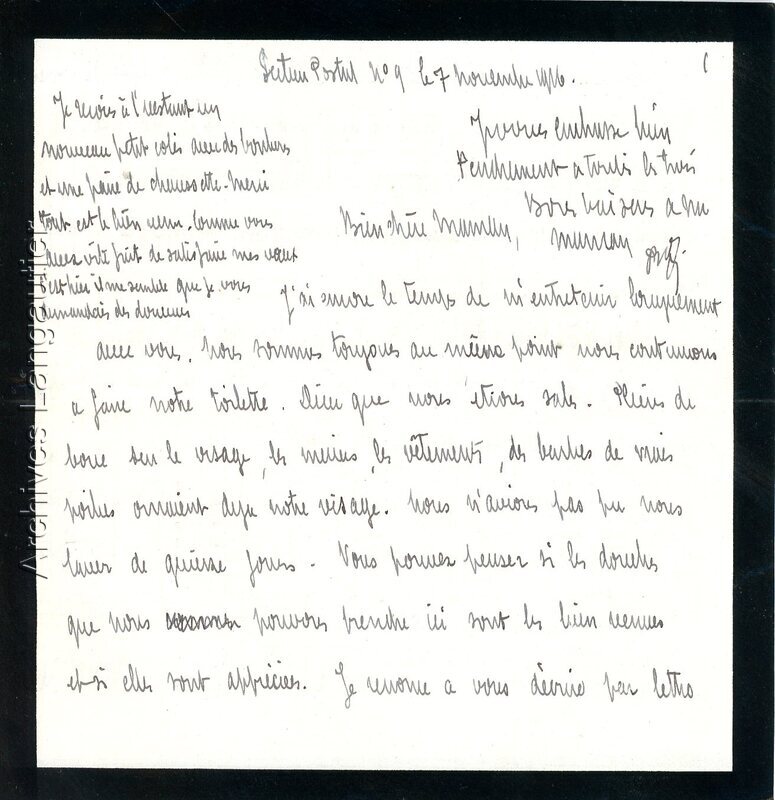 Secteur Postal N° 9 le 7 novembre 1916.
Je reçois à l'instant un
nouveau petit colis avec des bonbons
et une paire de chaussette. Merci
tout est le bien venu. Comme vous
avez vite fait de satisfaire mes vœux
C'est hier il me semble que je vous
demandais des douceurs
Yvonne embrasse bien
tendrement a toutes les trois
Bons baisers a ma
maman
Bien chère Maman,
J'ai encore le temps de m'entretenir longuement
avec vous. Nous sommes toujours au même point nous continuons
a faire notre toilette. Dieu que nous etions sales. Pleins de
boue sur le visage, les mains, les vêtements, des barbes de vrais
poilus ornaient deja notre visage. Nous n'avions pas pu nous
laver de quinze jours. Vous pouvez penser si les douches
que nous pouvons prendre ici sont les bien venues
et si elles sont appréciées. Je renonce a vous décrire par lettre
Archives Langautier